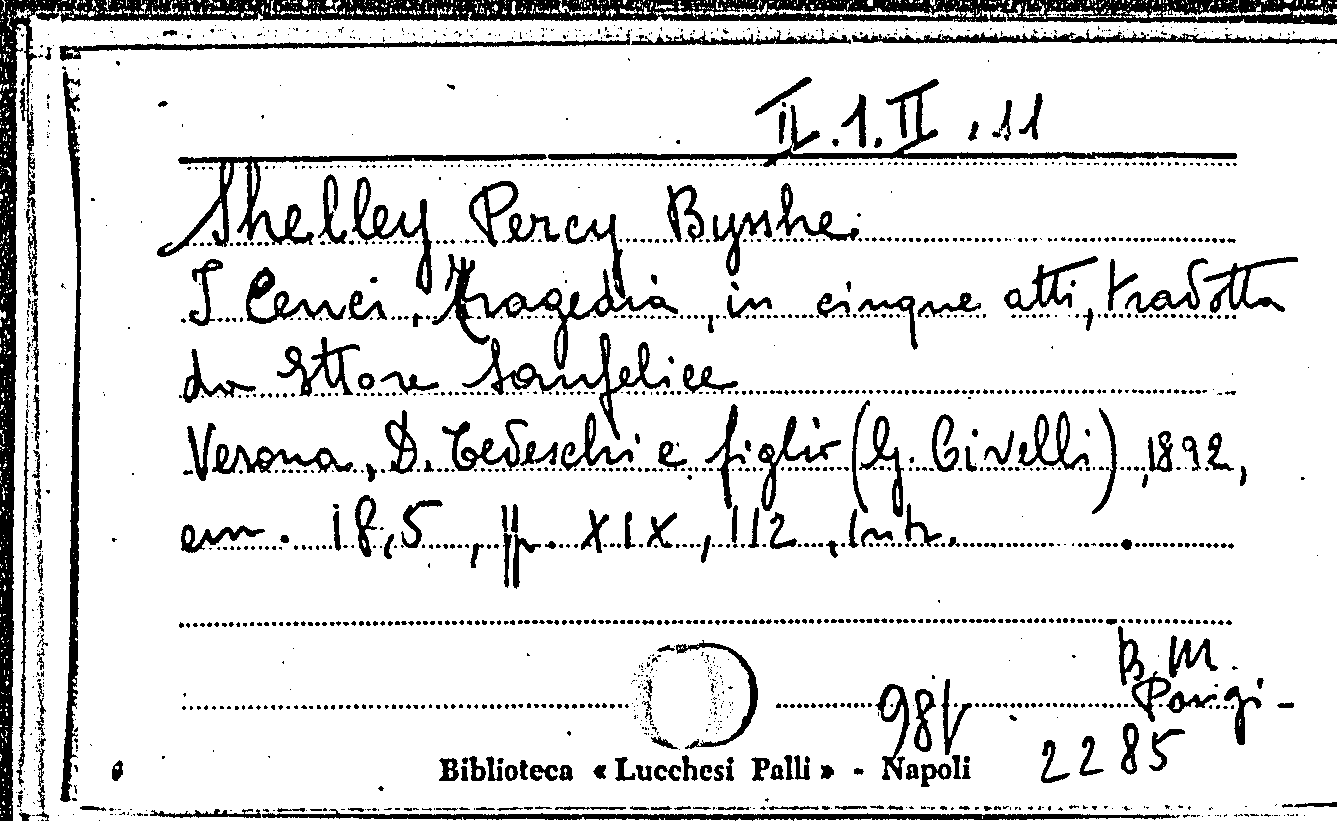 II.1.II.11
Shelley Percy Bysshe.
I Cenci, tragedia, in cinque atti, tradotta
da Ettore Sanfelice
Verona, D. Tedeschi e figlio (G. Civelli), 1892,
cm. 18,5, pp. XIX, 112, Intr.
B. M.
Parigi -
2285
Biblioteca « Lucchesi Palli » - Napoli